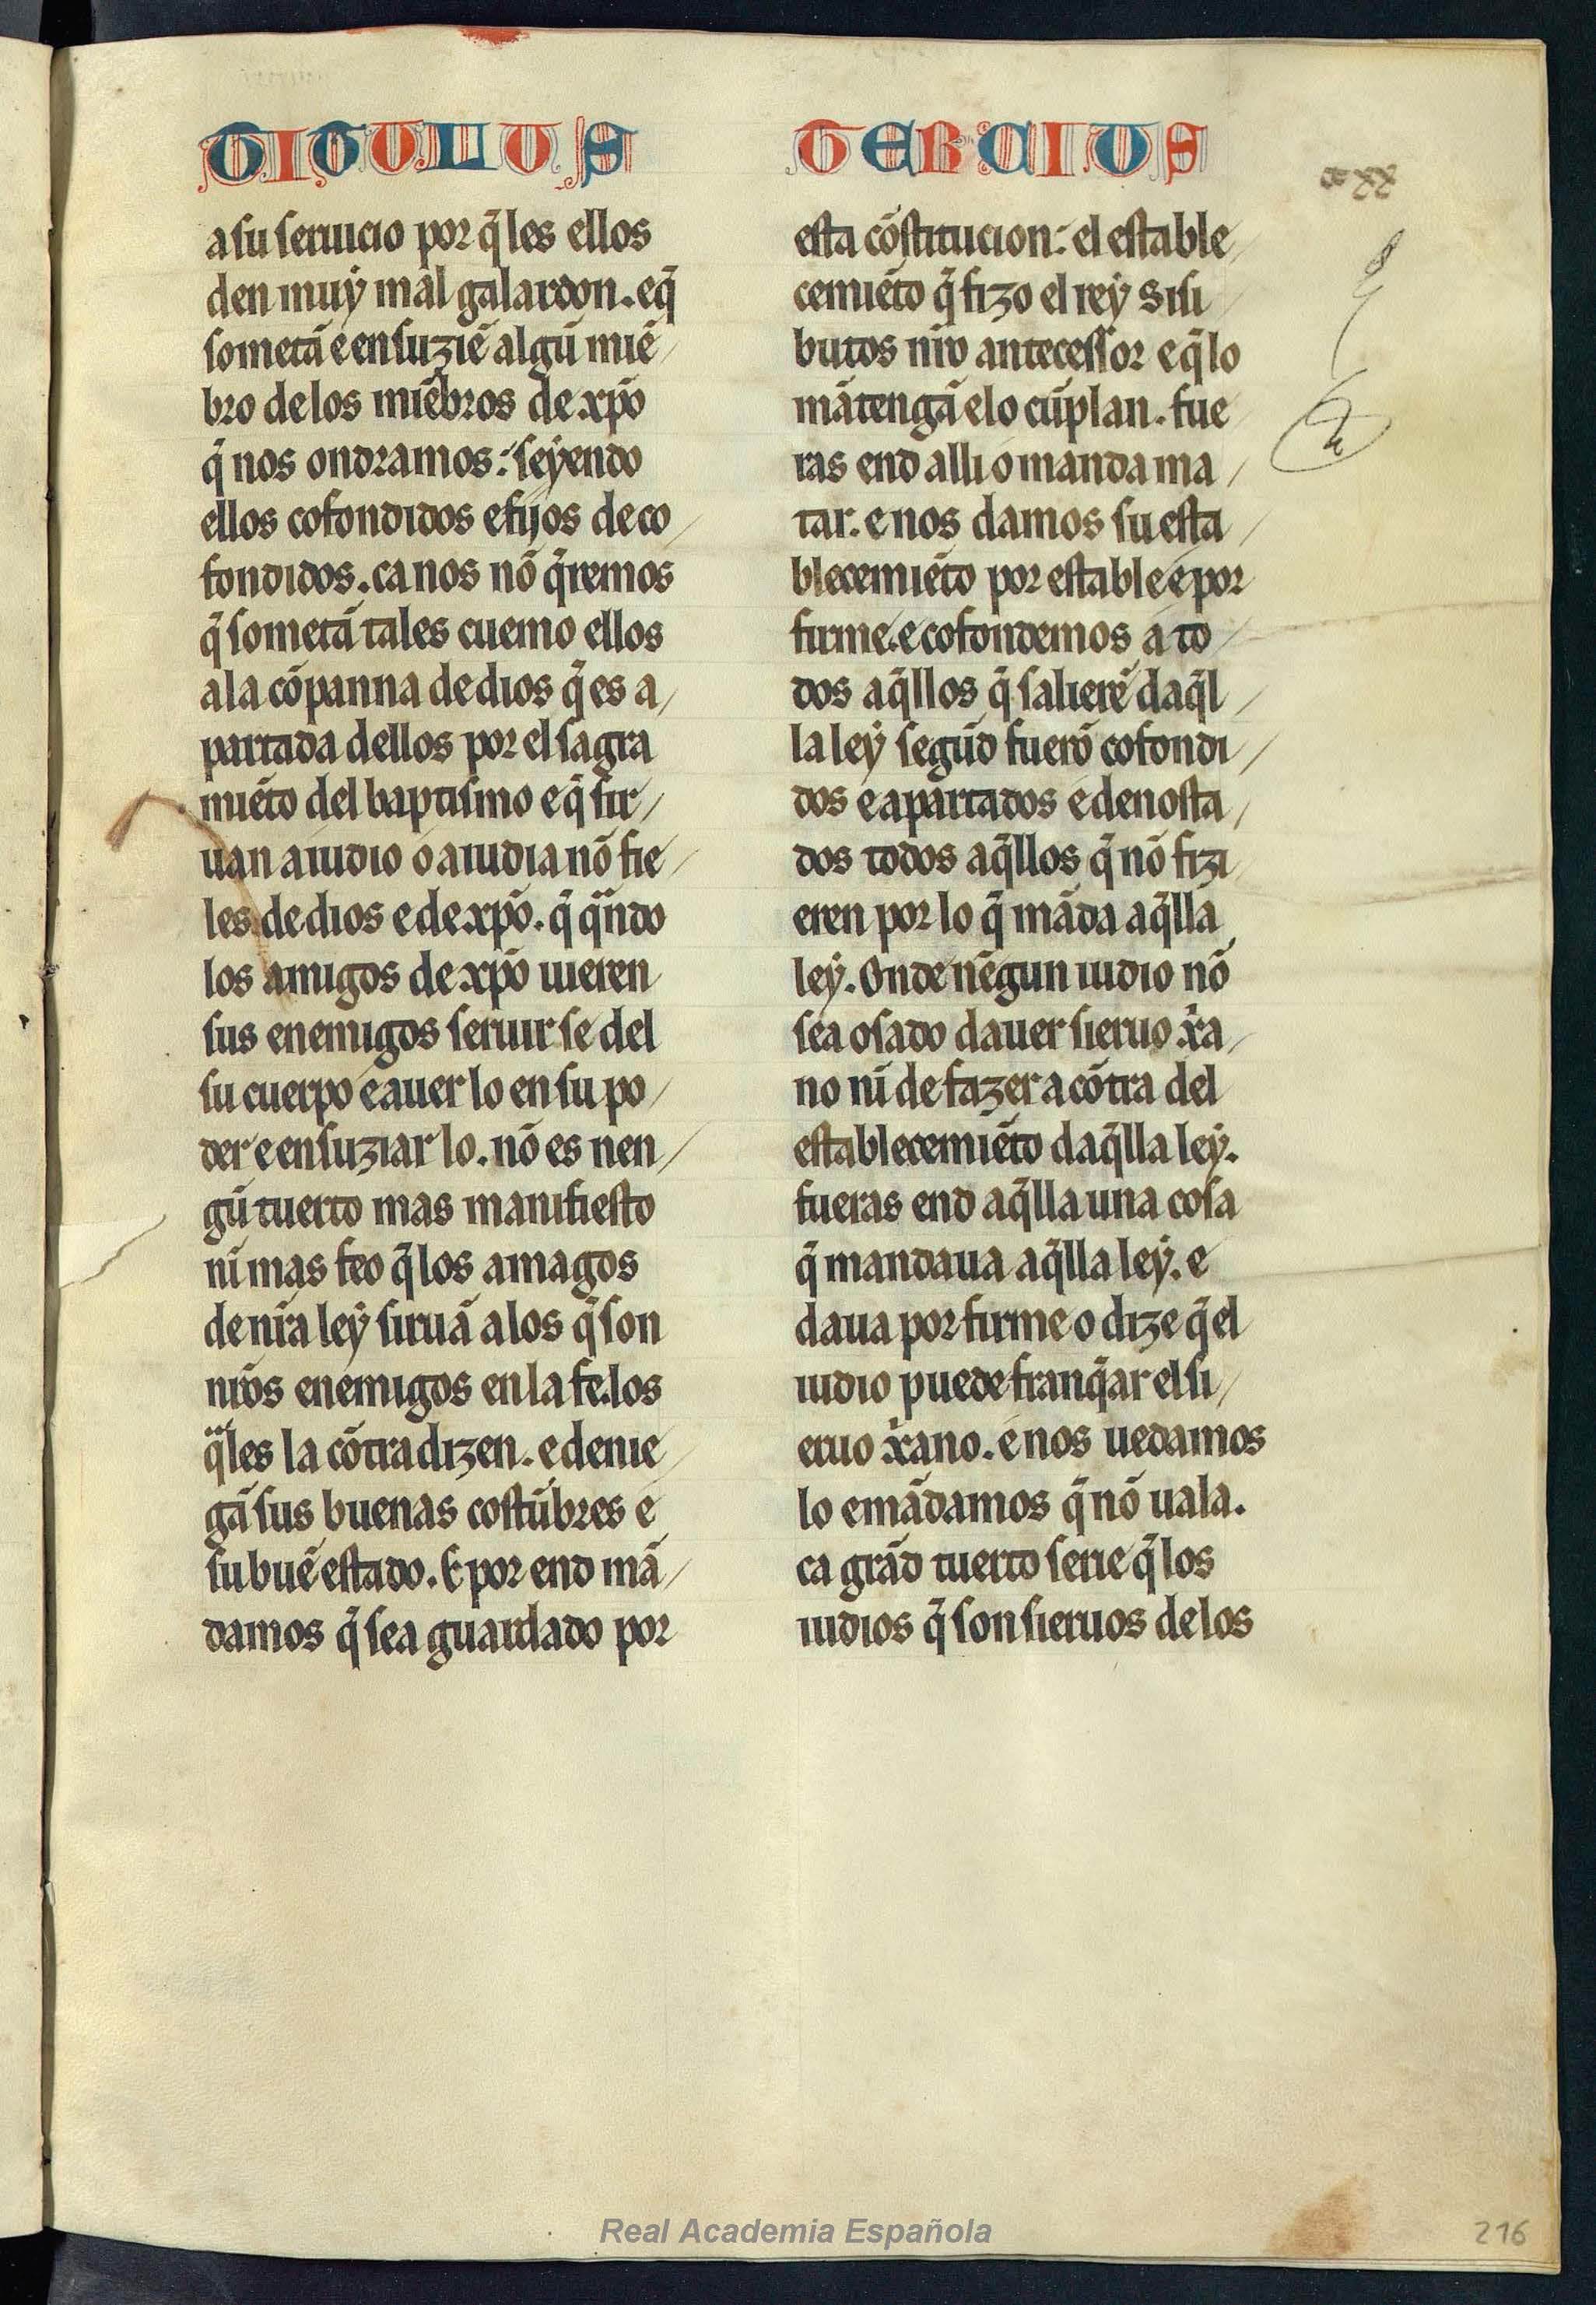 TITULUS
a su seruicio por q̄ les ellos
den muy mal galardon. e q̄
sometā e ensuziē algū miē
bro de los miēbros de xp̄o
q̄ nos ondramos: seyendo
ellos cofondidos e fijos de co
fondidos. ca nos nō q̄remos
q̄ sometā tales cuemo ellos
a la cōpanna de dios q̄ es a
partada dellos por el sagra
miēto del baptismo e q̄ sir
uan a iudio o a iudia nō fie
les de dios e de xp̄o. q̄ q̄ndo
los amigos de xp̄o uieren
sus enemigos seruir se del
su cuerpo e auer lo en su po
der e ensuziar lo. nō es nen
gū tuerto mas manifiesto
nī mas feo q̄ los amagos
de nr̄a ley siruā a los q̄ son
nr̄os enemigos en la fe. los
q̄les la cōtradizen. e denie
gā sus buenas costūbres e
su buē estado. E por end mā
damos q̄ sea guardado por
TERCIUS
esta cōstitucion: el estable
cemiēto q̄ fizo el rey sisi
butos nr̄o antecessor e q̄ lo
mātengā e lo cūplan. fue
ras end alli o manda ma
tar. e nos damos su esta
blecemiēto por estable e por
firme. e cofondemos a to
dos aq̄llos q̄ salierē daq̄l
la ley segūd fuerō cofondi
dos e apartados e denosta
dos todos aq̄llos q̄ nō fizi
eren por lo q̄ māda aq̄lla
ley. Onde nēgun iudio nō
sea osado dauer sieruo xr̄a
no nī de fazer a cōtra del
establecemiēto daq̄lla ley.
fueras end aq̄lla una cosa
q̄ mandaua aq̄lla ley. e
daua por firme o dize q̄ el
iudio puede franq̄ar el si
eruo xr̄ano. e nos uedamos
lo e mādamos q̄ nō uala.
ca grād tuerto serie q̄ los
iudios q̄ son sieruos de los
Real Academia Española
216